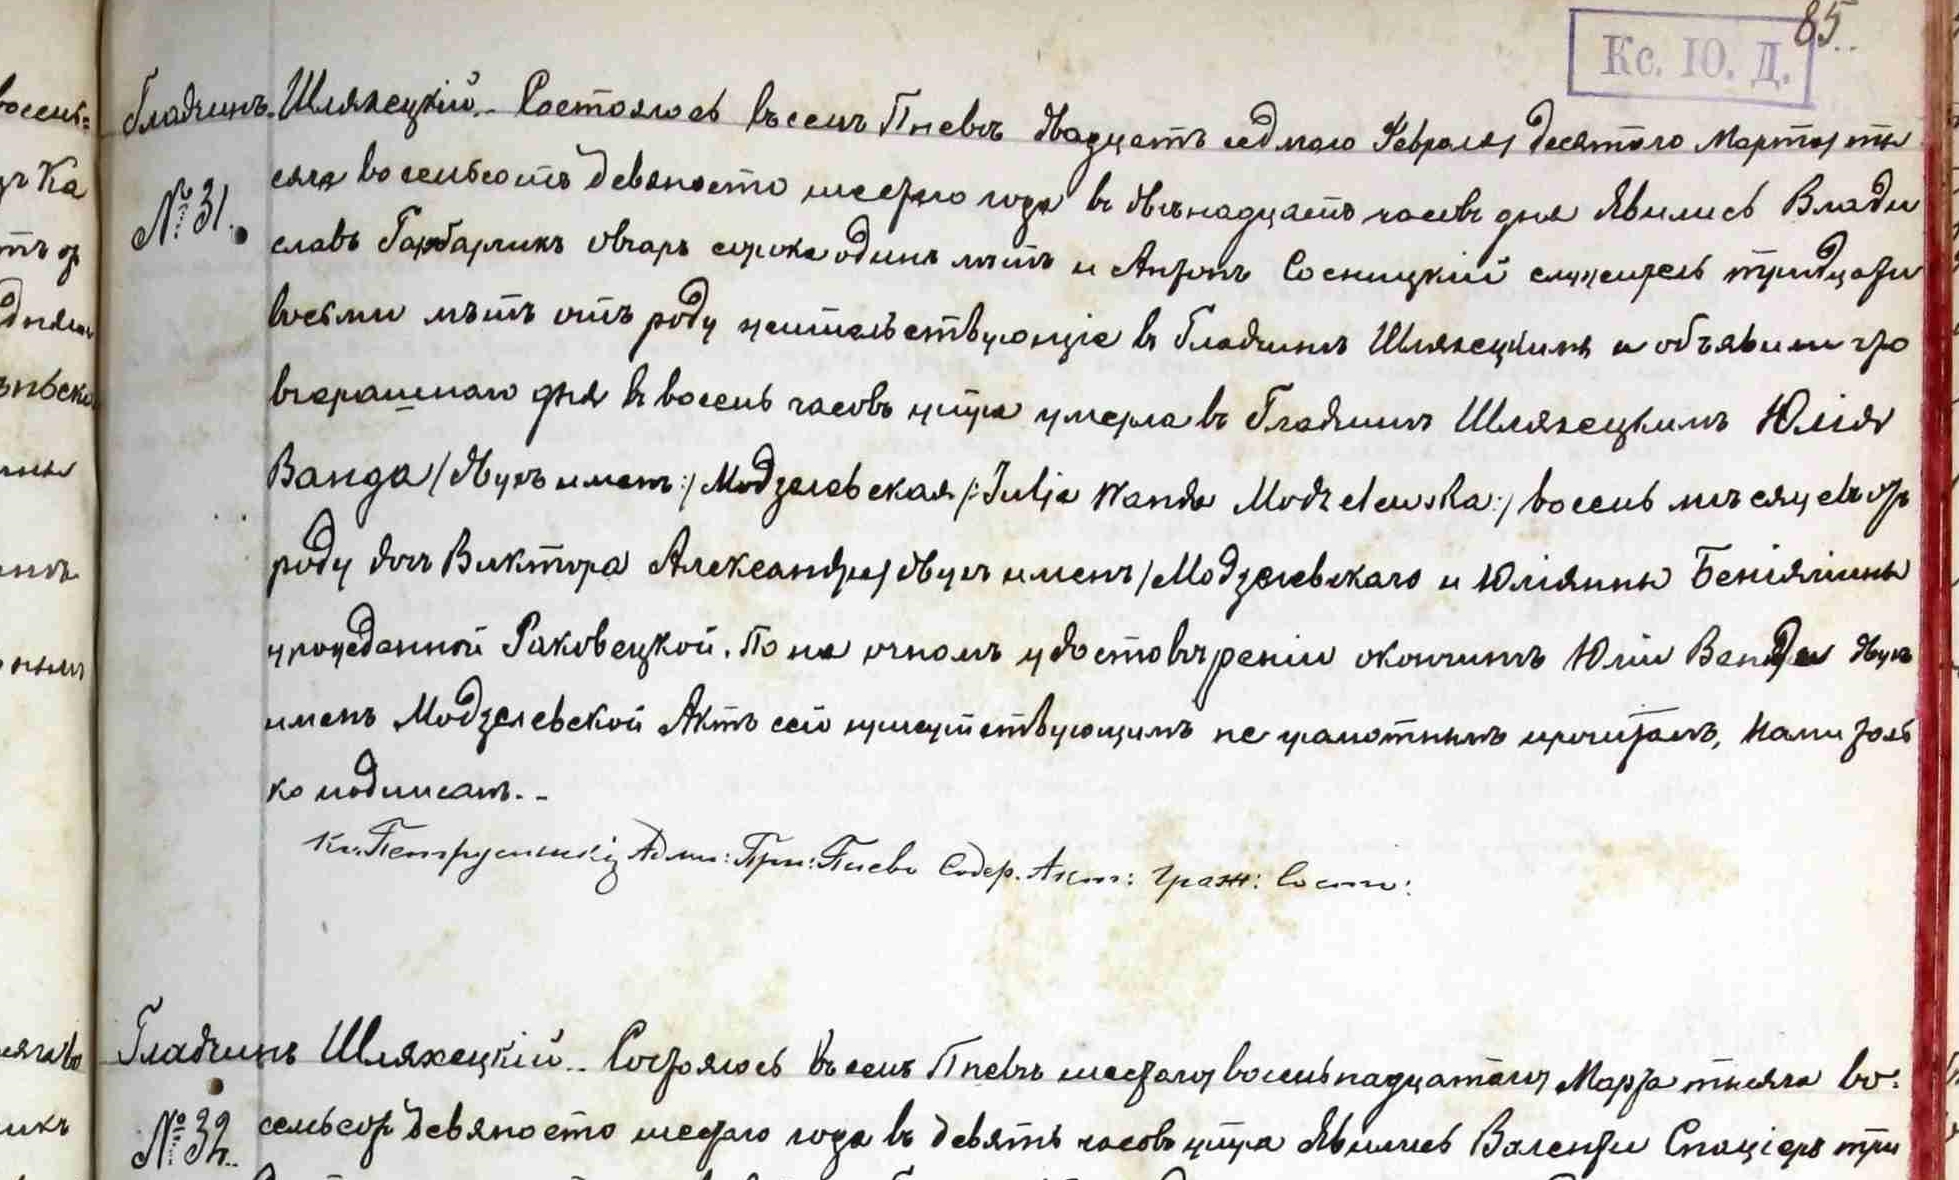 85.
Кс. Ю. Д.
Гладчинъ Шляхецкій. Состоялось въ селѣ Пневѣ двадцать седмаго Февраля/десятаго Марта/ты
сяча восемьсотъ девяносто шестаго года въ двѣнадцать часовъ дня Явились Влади
№ 31.
славъ Гарбарчикъ овчаръ сорока одинъ лѣтъ и Антонъ Сосницкій служитель тридцати
восьми лѣтъ отъ роду жительствующіе въ Гладчинѣ Шляхецкимъ и объявили что
вчерашнаго дня въ восемь часовъ утра умерла въ Гладчинѣ Шляхецкимъ Юлія
Ванда/двухъ именъ:/Модзелевская/:Julja Wanda Modzelewska:/восемь мѣсяцевъ отъ
роду дочь Виктора Александра/двухъ именъ/Модзелевскаго и Юліянны Беніямины
урожденной Раковецкой. По на очномъ удостовѣреніи окончинѣ Юліи Ванды двухъ
именъ Модзелевской Актъ сей присутствующимъ не грамотнымъ прочитанъ, Нами толь
ко подписанъ. -
Кс. Адми: При: Пнево Содер. Акт: Граж: Сост:
Гладчинъ Шляхецкій. Состоялось въ селѣ Пневѣ шестаго/восемьнадцатаго/Марта тысяча во-
№ 32.
семьсотъ девяносто шестаго года въ девять часовъ утра Явились Валенти Спаціеръ три